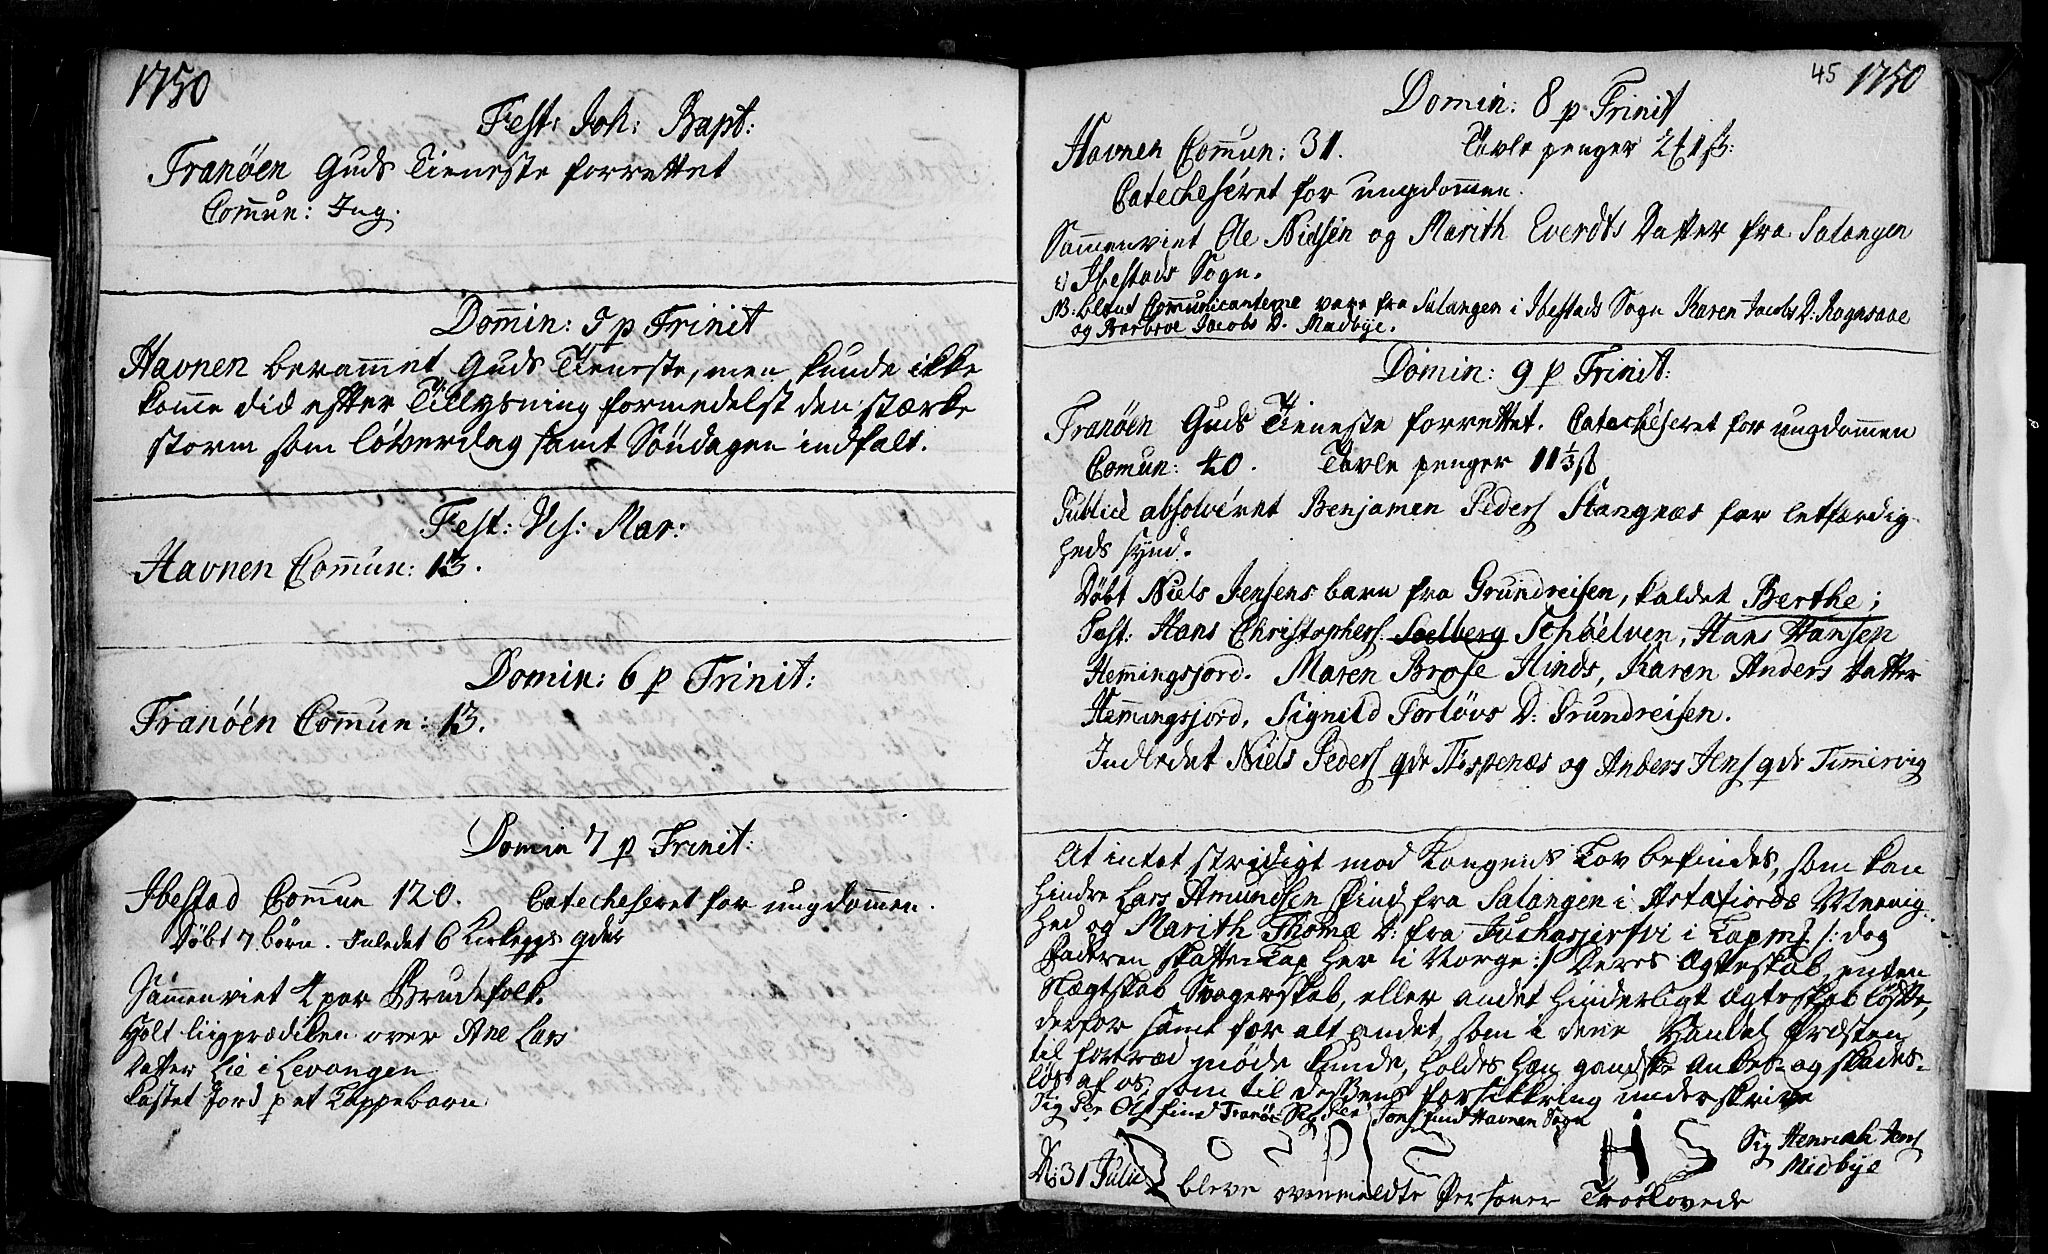 1750
Fest: Joh: Bapt:
Tranöen Guds Tieneste forrettet
Com̄un: Ing.
Dom̄in: 5 p Trinit
Havnen beram̄et Guds Tieneste, men kunde ikke
kom̄e did efter Tillysning formedelst den stærke
storm som löverdag samt Söndagen indfalt.
Fest: Vis: Mar:
Havnen Com̄un: 13.
Domin: 6 p Trinit:
Tranöen Com̄un: 13.
Domin 7 p Trinit:
Ibestad Com̄un 120. Catecheseret for ungdom̄en.
Döbt 7 börn. Inledet 6 Kirkegs qder
Sam̄enviet 4 par Brudefolk.
Holt liigprædiken over Ane Lars
Datter Lie i Levangen
kastet Jord p et Lappebarn
45 1750
Domin: 8 p Trinit
Havnen Com̄un: 31. Tavle penger 2 1 ß:
Catecheseret for ungdom̄en.
Sam̄enviet Ole Nielsen og Marith Everdts Datter fra Salangen
i Ibestads Sogn.
NB. blant Com̄unicanterne vare fra Salangen i Ibestads Sogn Karen Jacobs D. Rognsaae
og Barbroe Jacobs D. Medbÿe.
Domin: 9 p Trinit:
Tranöen Guds Tieneste forrettet. Catecheseret for ungdom̄en
Com̄un: 40. Tavle penger 11 1/3 ß
Publicè absolveret Benjamen Peders Stangnæs for letfærdig-
heds sÿnd.
Döbt Niels Jensens barn fra Grundreisen, kaldet Berthe;
Test: Hans Christophers. Soelberg Schöelven, Hans Hansen
Hem̄ingsjord. Maren Brose Hinds, Karen Anders Datter
Hem̄ingsjord, Signild Torlövs D: Grundreisen.
Indledet Niels Peders qde Tispenæs og Anders Jens qde Tim̄ervig
At intet stridigt mod Kongens Lov befindes, som kan
hindre Lars Amundsen find fra Salangen i Astafiords Menig-
hed og Marith Thomæ D: fra i Lapm: /: dog
Faderen skatter Lap her i Norge :/ Deres Ægteskab, enten
Slægtskab Svogerskab, eller andet hinderligt ægteskab löfte,
derfor samt for alt andet, som i dene Handel Præsten
til fortræd möde kunde, holdes han gandske anker- og skades-
lös af os, som til dessens forsikkring underskrive
Sig Per Ols find Tranöe Jons find Havnen Sogn
H S Sig Henrich Jens
Midbÿe
D. 31 Julii bleve ovenmeldte Personer Trolovede